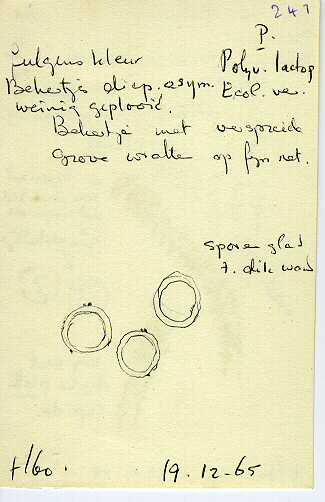 247
P.
fulgens kleur Polyv. lactog
Bekertjes diep. asym. Ecol. ve.
weinig geplooid.
Bekertje met verspreide
grove wratten op fijn net.
sporen glad
7. dik wand
H60. 19-12-65